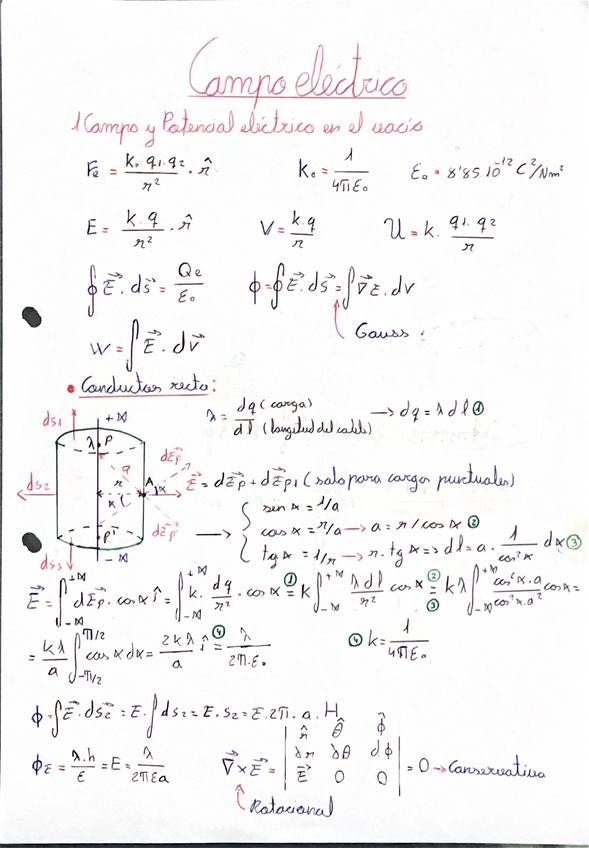 Campo eléctrico
1 Campo y Potencial eléctrico en el vacío
Fe = k₀ q₁·q₂ / r² · r̂    K₀ = 1 / 4πε₀    ε₀ = 8'85·10⁻¹² C²/Nm²
E = k·q / r² · r̂    V = k·q / r    U = k· q₁·q₂ / r
∮ E⃗·ds⃗ = Qe / ε₀    ϕ = ∮ E⃗·ds⃗ = ∫ ∇⃗E·dV
Gauss
W = ∫ E⃗·dv⃗
• Conductor recto:
λ = dq (carga) / dl (longitud del cable) → dq = λ dl ①
ds₁ +∞ λ P a r α A α dE⃗p dE⃗p' ds₂ P' ds₃ -∞
E⃗ = dE⃗p + dE⃗p₁ (solo para cargas puntuales)
→ { sen α = 1/a
cos α = r/a → a = r/cos α ②
tg α = 1/r → r·tg α => dl = a· 1/cos²α dα ③
E⃗ = ∫₋∞⁺∞ dE⃗p·cos α î = ∫₋∞⁺∞ k· dq/r² · cos α =① k ∫₋∞⁺∞ λdl/r² cos α =②③ kλ ∫₋∞⁺∞ cos²α·a / cos²α·a² cos α =
= kλ/a ∫₋π/2^π/2 cos α dα = 2kλ/a î =④ λ / 2π·ε₀    ④ k = 1 / 4πε₀
ϕ = ∫ E⃗·ds⃗₂ = E·∫ ds₂ = E·S₂ = E·2π·a·H
ϕE = λ·h / ε = E = λ / 2πεa    ∇⃗ × E⃗ = | r̂ θ̂ ϕ̂
∂r ∂θ dϕ
E⃗ 0 0 | = 0 → Conservativa
Rotacional